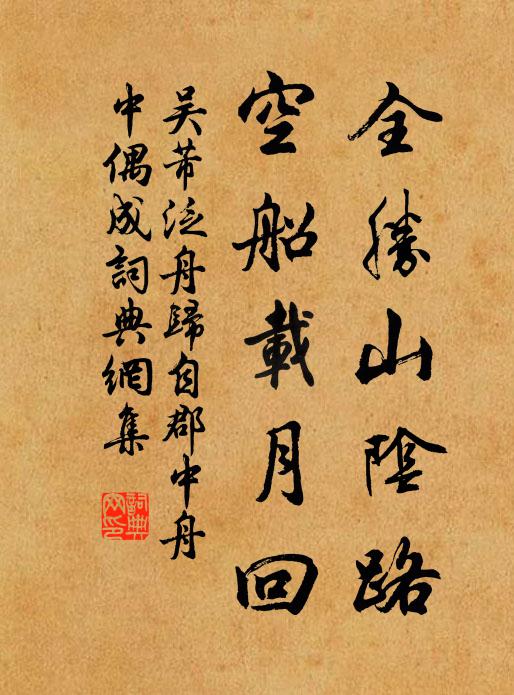 全勝山陰路
空船載月回
吴芾泛舟歸自郡中舟
中偶成詞典網集
詞典
网印